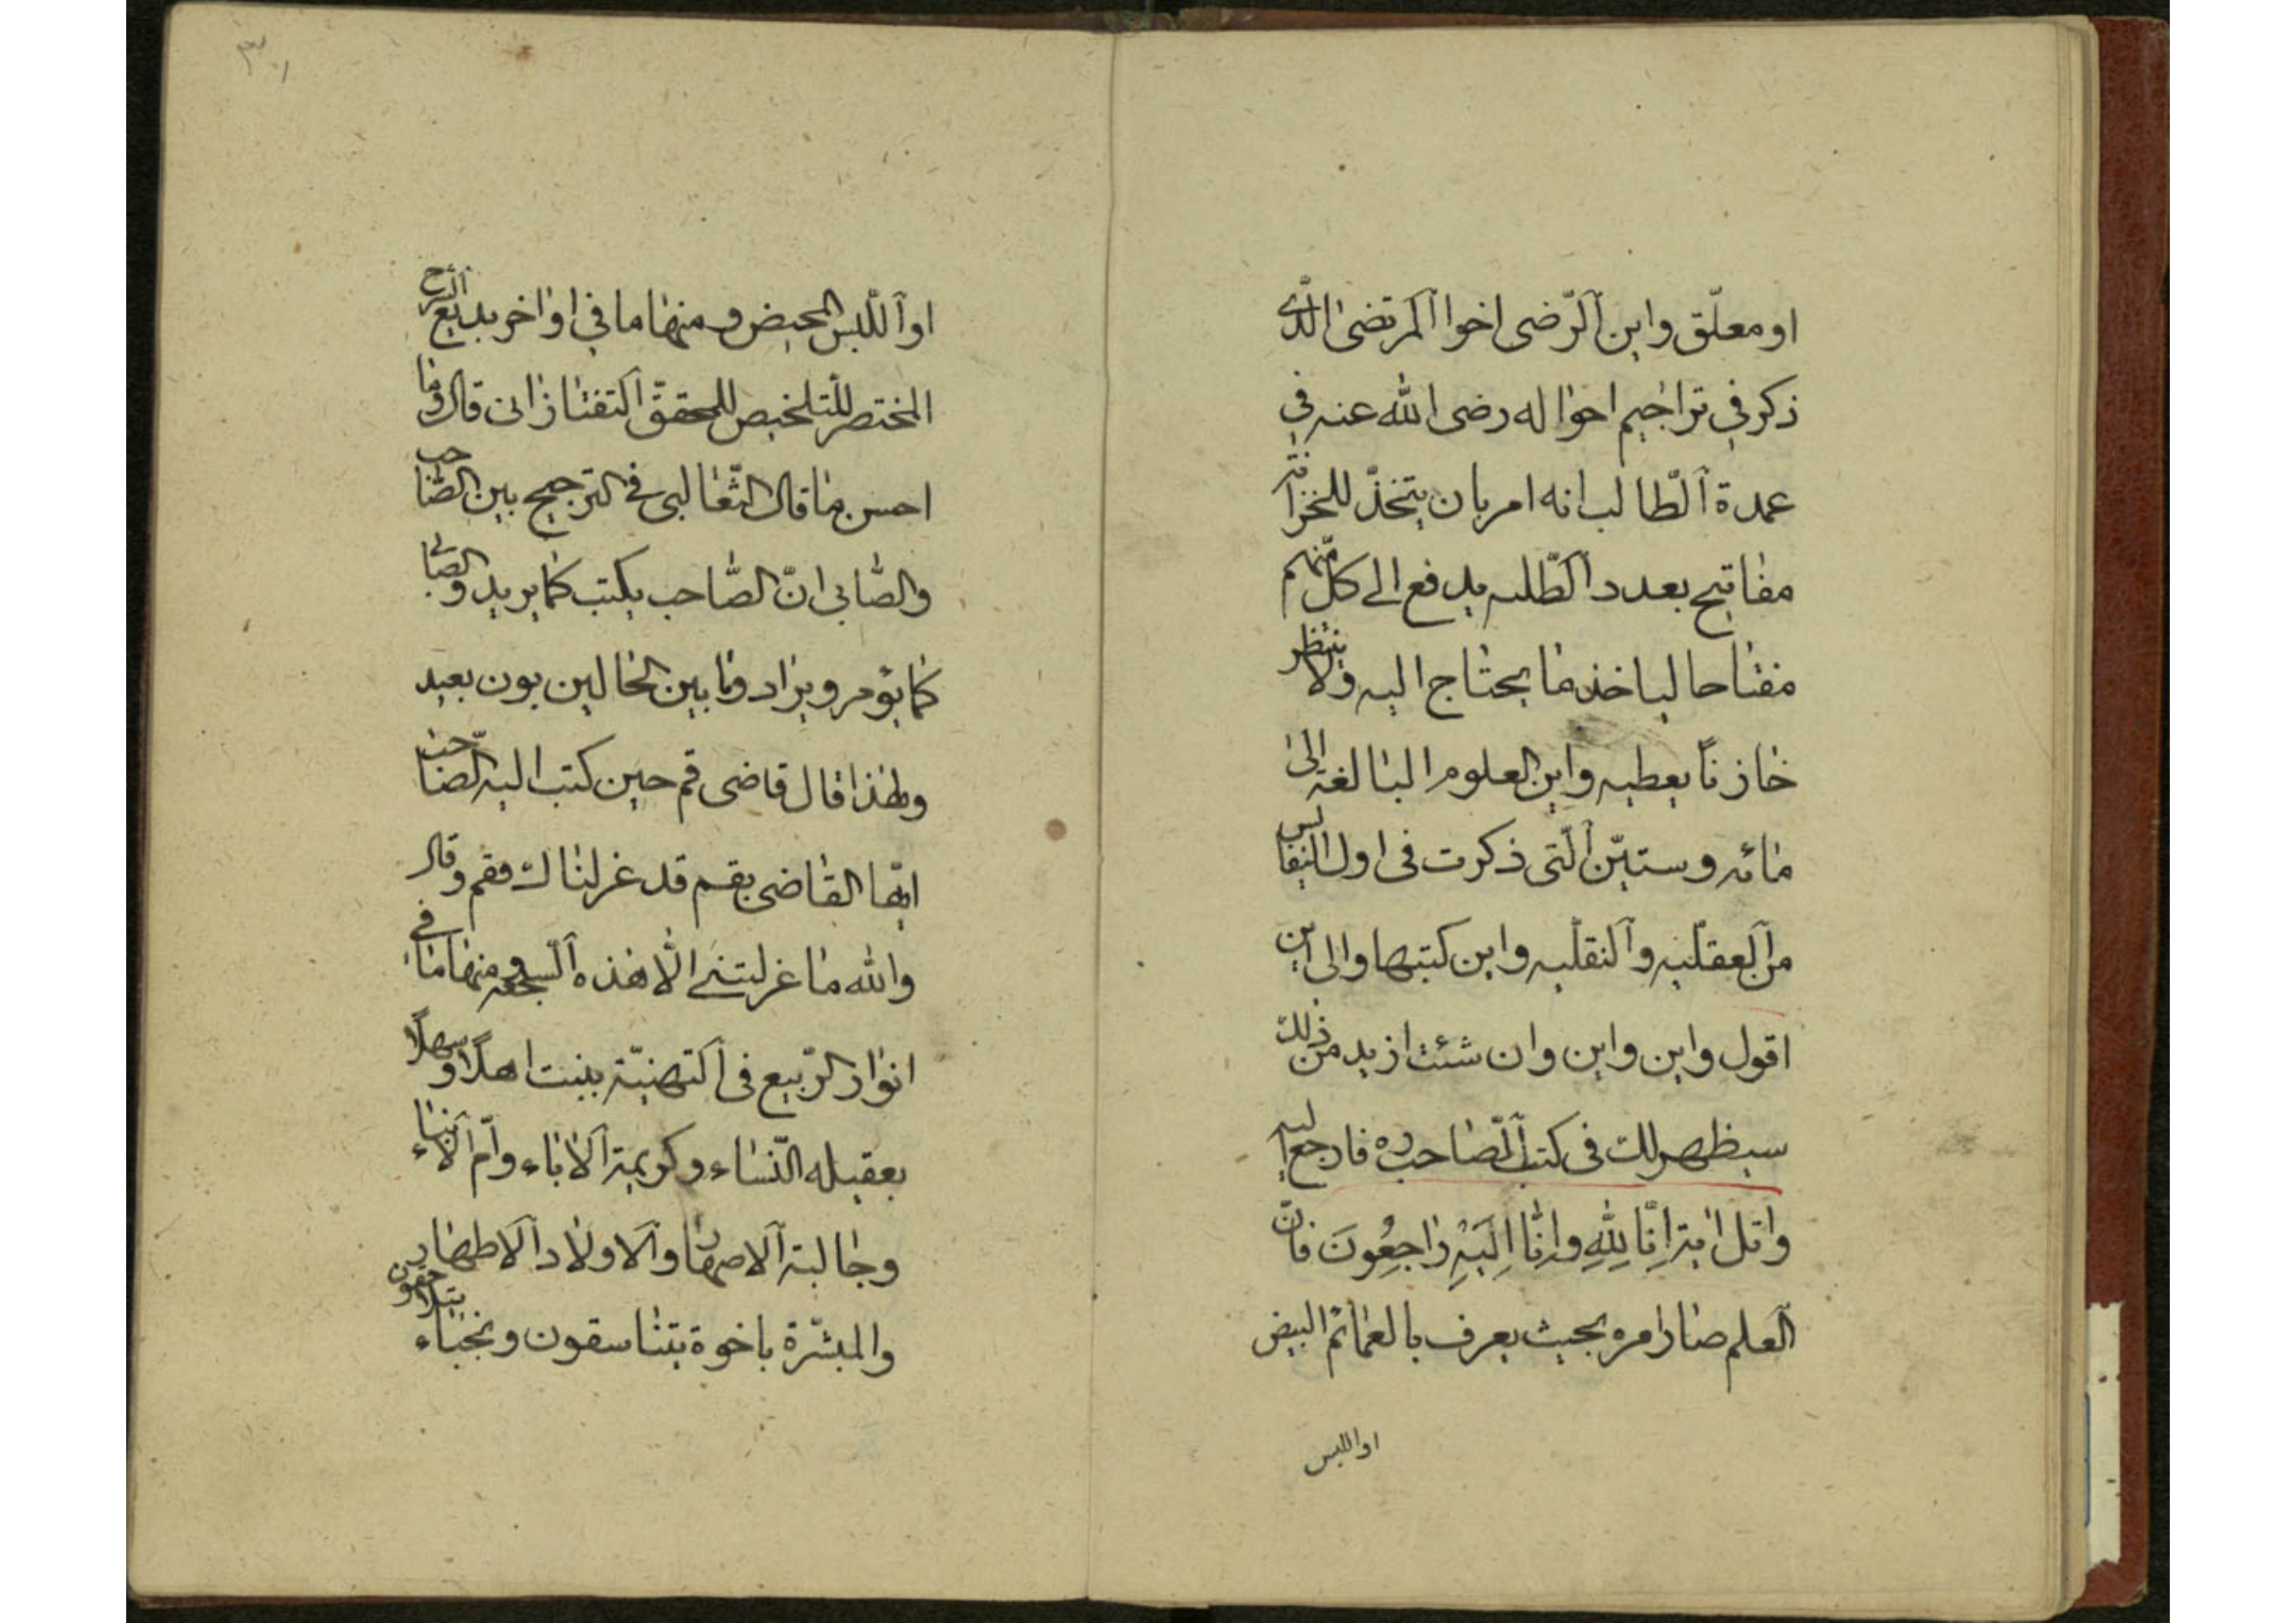 او معلّق واين الرّضى اخوا المرتضى الّذى
ذكر فى تراجيم احواله رضى الله عنه فى
عمدة الطّالب انه امر بان يتخذّ للخزانة
مفاتيح بعدد الطّلبه يدفع الى كلّ منهم
مفتاحا لياخذ ما يحتاج اليه ولا ينتظر
خازنًا يعطيه واين العلوم البالغة الى
مائه وستيّن الّتى ذكرت فى اول النفايس
من العقليّه والنقليّه واين كتبها والى اين
اقول واين واين وان شئت ازيد من ذلك
سيظهر لك فى كتب الصّاحب ره فارجع اليه
واتل اية اِنَّا لِلّٰهِ وَاِنَّا اِلَيْهِ رٰاجِعُونَ فانّ
العلم صار امره بحيث يعرف بالعمائم البيض
او اللبس
٣٠١
او اللّبس المحيض ومنها ما فى اواخر بديع الشرح
المختصر للتلخيص للمحقق التفتازانى قال وما
احسن ما قال الثّعالبى فى الترجيح بين الصّاحب
والصّابى انّ الصّاحب يكتب كما يريد والصّابى
كما يؤمر ويراد وما بين الحالين بون بعيد
ولهذا قال قاضى قم حين كتب اليه الصّاحب
ايّها القاضى بقم قد عزلناك فقم وقال
والله ما عزلتنى الّا هذه السجعه ومنها ما فى
انوار الرّبيع فى التهنيّة ببنت اهلًا وسهلًا
بعقيله النّساء وكريمة الاباء وامّ الابناء
وجالبة الاصهار والاولاد الاطهار
والمبشّرة باخوة يتناسقون ونجباء يتلاحقون